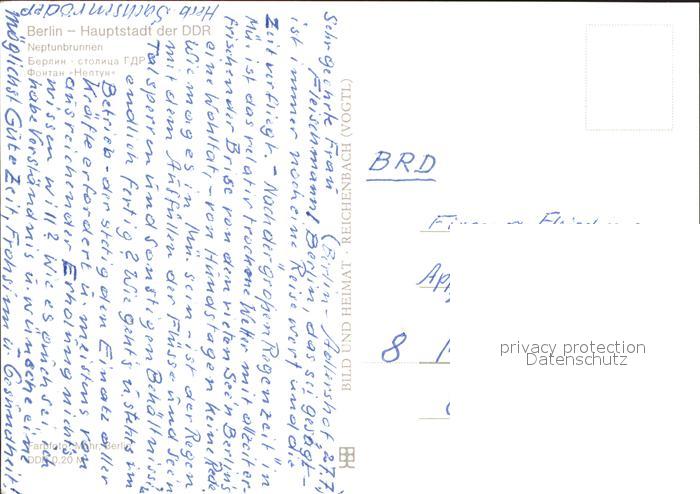 Berlin – Hauptstadt der DDR
Neptunbrunnen
Берлин - столица ГДР
Фонтан «Нептун»
(Berlin-Adlershof 27.7.
Sehr geehrte Frau
Fleischmann! Berlin, das sei gesagt -
ist immer noch eine Reise wert und die
Zeit verfliegt. - Nach der großen Regenzeit in
Mü. ist das relativ trockene Wetter mit allzeiter-
frischender Brise von den vielen Seen Berlins
eine Wohltat, - von Hundstagen keine Rede
Wie mag es in Mün. sein - ist der Regen
mit dem Auffüllen der Flüsse und Seen
Talsperren und sonstigen Behältnissen
endlich fertig? Wie geht's u. steht's im
Betrieb - der stetig den Einsatz aller
Kräfte erfordert u. meistens kein
ausreichender Erholung
wissen will? Wie es auch sei, ich
habe Verständnis u. wünsche eine
möglichst Gute Zeit, Frohsinn u. Gesundheit!
Herb. Sachsenröder
BILD UND HEIMAT · REICHENBACH (VOGTL)
Farbfoto: Mohr, Berlin
DDR 0,20 M
BRD
8
privacy protection
Datenschutz